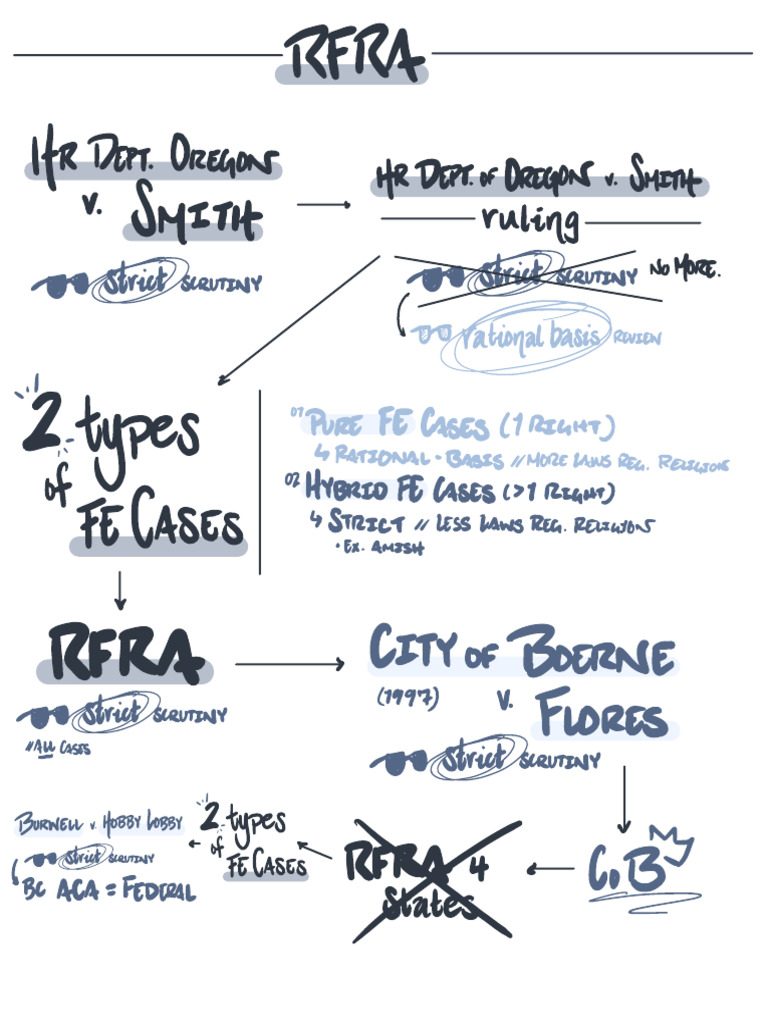 RFRA
HR DEPT. OREGON
v. SMITH
strict SCRUTINY
HR DEPT. OF OREGON v. SMITH
ruling
strict SCRUTINY NO MORE.
rational basis REVIEW
2 types
of
FE CASES
01 PURE FE CASES (1 RIGHT)
↳ RATIONAL-BASIS // MORE LAWS REG. RELIGION
02 HYBRID FE CASES (>1 RIGHT)
↳ STRICT // LESS LAWS REG. RELIGION
• EX. AMISH
RFRA
strict SCRUTINY
// ALL CASES
CITY OF BOERNE
(1997) v. FLORES
strict SCRUTINY
C.B
RFRA 4
States
2 types
of
FE CASES
BURWELL v. HOBBY LOBBY
strict SCRUTINY
BC ACA = FEDERAL